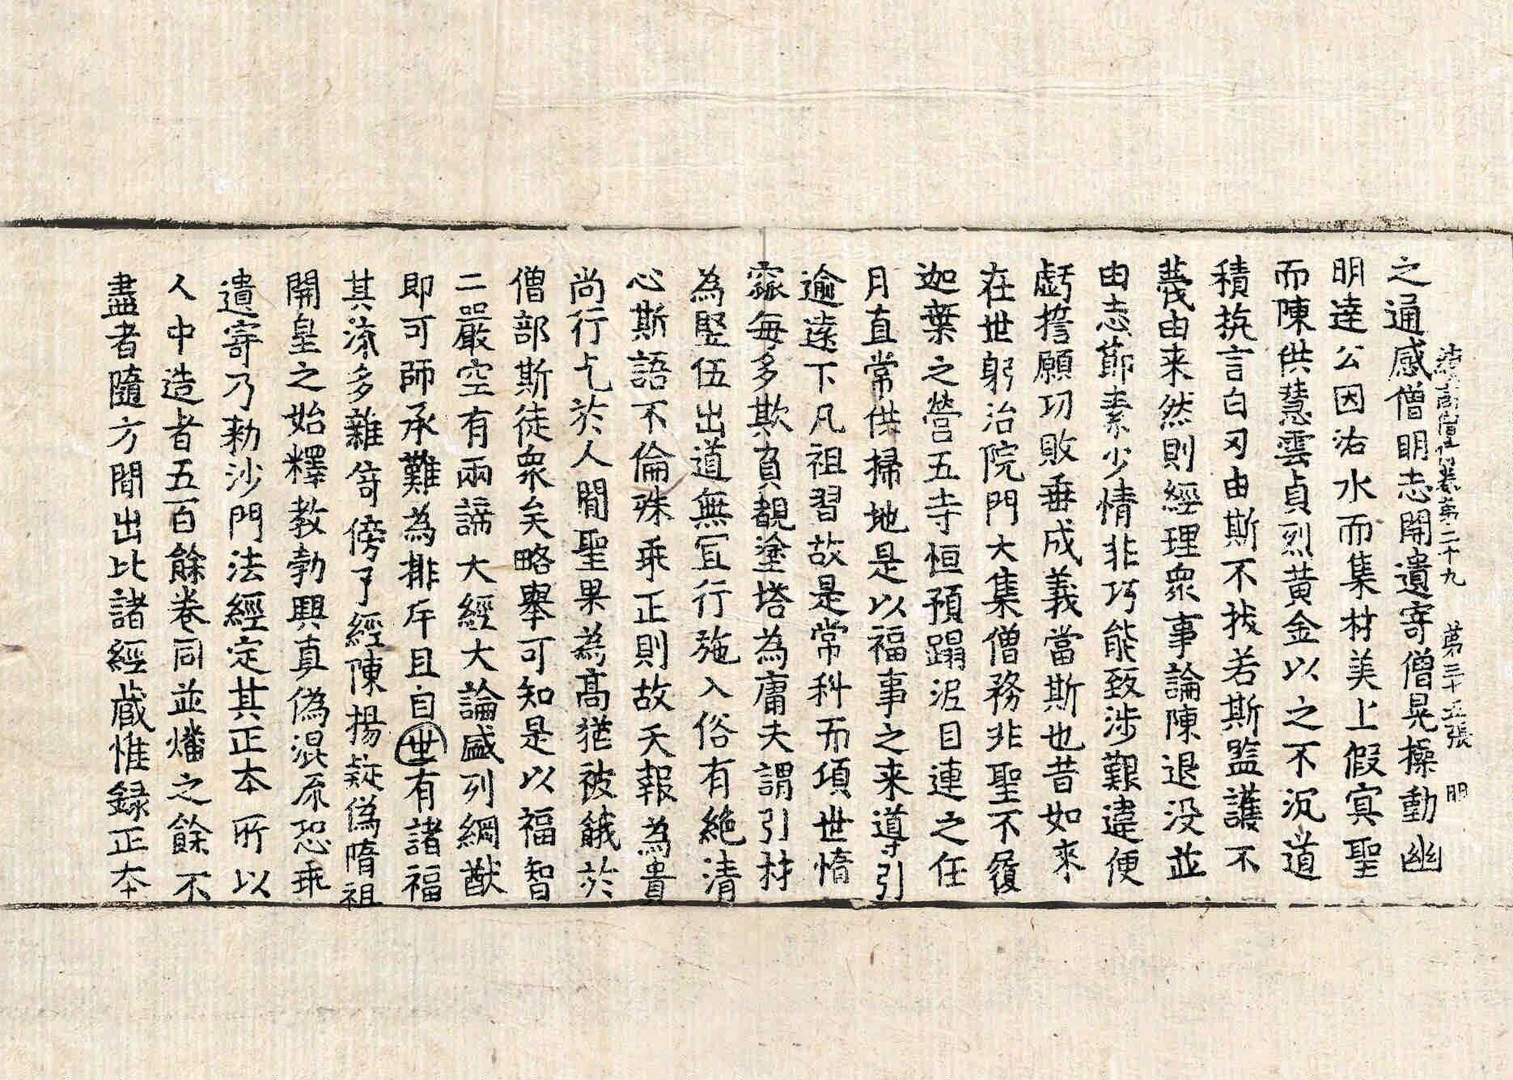 續高僧傳卷第二十九 第三十五張 明
之通感僧明志開遺寄僧晃操動幽
明達公因治水而集材美上假冥聖
而陳供慧雲貞烈黃金以之不沉道
積抗言白刃由斯不拔若斯監護不
羙由来然則經理衆事論陳退没並
由志節素少情非巧能致涉艱違便
虧誓願功敗垂成義當斯也昔如來
在世躬治院門大集僧務非聖不履
迦葉之營五寺恒預蹋泥目連之任
月直常供掃地是以福事之来導引
逾遠下凡祖習故是常科而項世惰
窳每多欺負覩塗塔為庸夫謂引材
為豎伍出道無冝行施入俗有絶清
心斯語不倫殊乖正則故天報為貴
尚行乞於人閒聖果為高猶被餓於
僧部斯徒衆矣略舉可知是以福智
二嚴空有兩諦大經大論盛列綱猷
即可師承難為排斥且自世有諸福
其流多雜竒傍㐧經陳揚疑偽隋祖
開皇之始釋教勃興真偽混原恐乖
遺寄乃勅沙門法經定其正本所以
人中造者五百餘卷同並燔之餘不
盡者隨方閒出比諸經藏惟録正本